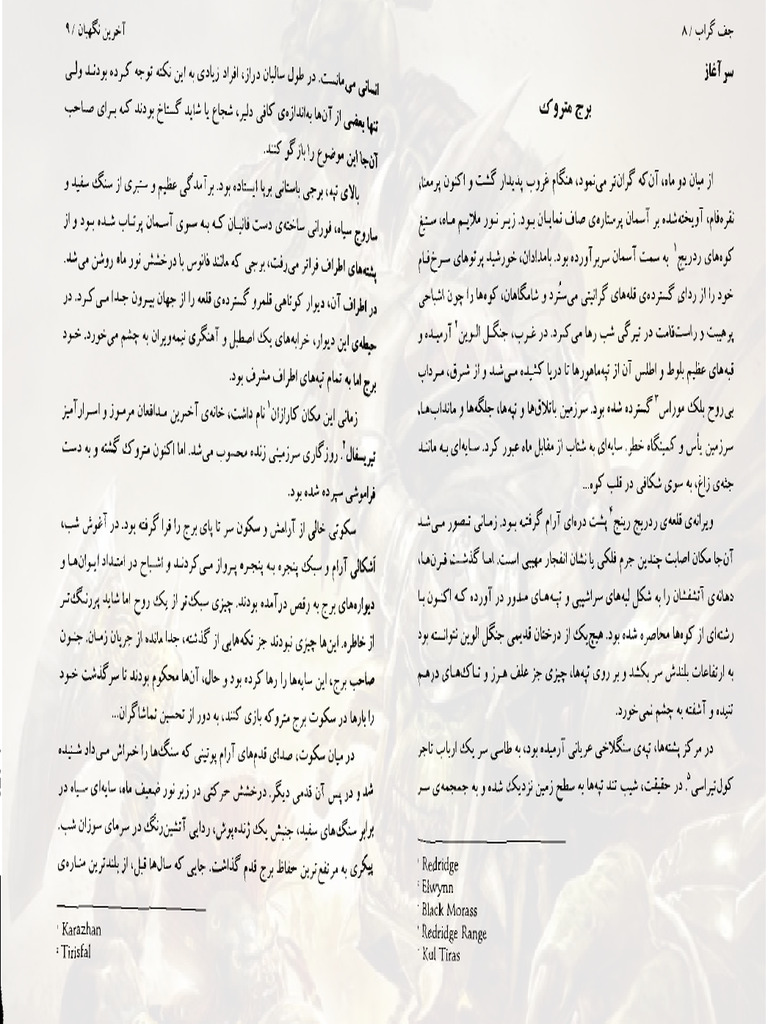 جف گراب / ۸
سرآغاز
برج متروک
از میان دو ماه، آن‌که گران‌تر می‌نمود، هنگام غروب پدیدار گشت و اکنون پرمعنا،
نقره‌فام، آویخته‌شده بر آسمان پرستاره‌ی صاف نمایان بود. زیر نور ملایم ماه، ستیغ
کوه‌های ردریج۱ به سمت آسمان سر برآورده بود. بامدادان، خورشید پرتوهای سرخ‌فام
خود را از ردای گسترده‌ی قله‌های گرانیتی می‌سترد و شامگاهان، کوه‌ها را چون اشباحی
پرهیبت و راست‌قامت در تیرگی شب رها می‌کرد. در غرب، جنگل الوین۲ آرمیده و
قبه‌های عظیم بلوط و اطلس آن از تپه‌ماهورها تا دریا کشیده می‌شد و از شرق، مرداب
بی‌روح بلک موراس۳ گسترده شده بود. سرزمین باتلاق‌ها و تپه‌ها، جلگه‌ها و مانداب‌ها،
سرزمین یأس و کمینگاه خطر. سایه‌ای به شتاب از مقابل ماه عبور کرد. سایه‌ای به مانند
جثه‌ی زاغ، به سوی شکافی در قلب کوه...
ویرانه‌ی قلعه‌ی ردریج رینج۴ پشت دره‌ای آرام گرفته بود. زمانی تصور می‌شد
آن‌جا مکان اصابت چندین جرم فلکی یا نشان انفجار مهیبی است. اما گذشت قرن‌ها،
دهانه‌ی آتشفشان را به شکل لبه‌های سراشیبی و تپه‌های مدور در آورده که اکنون با
رشته‌ای از کوه‌ها محاصره شده بود. هیچ‌یک از درختان قدیمی جنگل الوین نتوانسته بود
به ارتفاعات بلندش سر بکشد و بر روی تپه‌ها، چیزی جز علف هرز و تاک‌های درهم
تنیده و آشفته به چشم نمی‌خورد.
در مرکز پشته‌ها، تپه‌ی سنگلاخی عریانی آرمیده بود، به طاسی سر یک ارباب تاجر
کول‌تیراسی۵. در حقیقت، شیب تند تپه‌ها به سطح زمین نزدیک شده و به جمجمه‌ی سر
Redridge
Elwynn
Black Morass
Redridge Range
Kul Tiras
آخرین نگهبان / ۹
انسانی می‌مانست. در طول سالیان دراز، افراد زیادی به این نکته توجه کرده بودند ولی
تنها بعضی از آن‌ها به‌اندازه‌ی کافی دلیر، شجاع یا شاید گستاخ بودند که برای صاحب
آن‌جا این موضوع را بازگو کنند.
بالای تپه، برجی باستانی برپا ایستاده بود. برآمدگی عظیم و ستبری از سنگ سفید و
ساروج سیاه، فورانی ساخته‌ی دست فانیان که به سوی آسمان پرتاب شده بود و از
پشته‌های اطراف فراتر می‌رفت، برجی که مانند فانوس با درخشش نور ماه روشن می‌شد.
در اطراف آن، دیوار کوتاهی قلمرو گسترده‌ی قلعه را از جهان بیرون جدا می‌کرد. در
حیطه‌ی این دیوار، خرابه‌های یک اصطبل و آهنگری نیمه‌ویران به چشم می‌خورد. خود
برج اما به تمام تپه‌های اطراف مشرف بود.
زمانی این مکان کارازان۱ نام داشت، خانه‌ی آخرین مدافعان مرموز و اسرارآمیز
تیریسفال۲. روزگاری سرزمینی زنده محسوب می‌شد. اما اکنون متروک گشته و به دست
فراموشی سپرده شده بود.
سکوتی خالی از آرامش و سکون سر تا پای برج را فرا گرفته بود. در آغوش شب،
اشکالی آرام و سبک پنجره به پنجره پرواز می‌کردند و اشباح در امتداد ایوان‌ها و
دیواره‌های برج به رقص درآمده بودند. چیزی سبک‌تر از یک روح اما شاید پررنگ‌تر
از خاطره. این‌ها چیزی نبودند جز تکه‌هایی از گذشته، جدا مانده از جریان زمان. جنون
صاحب برج، این سایه‌ها را رها کرده بود و حال، آن‌ها محکوم بودند تا سرگذشت خود
را بارها در سکوت برج متروکه بازی کنند، به دور از تحسین تماشاگران...
در میان سکوت، صدای قدم‌های آرام پوتینی که سنگ‌ها را خراش می‌داد شنیده
شد و در پس آن قدمی دیگر. درخشش حرکتی در زیر نور ضعیف ماه، سایه‌ای سیاه در
برابر سنگ‌های سفید، جنبش یک ژنده‌پوش، ردایی آتشین‌رنگ در سرمای سوزان شب.
پیکری به مرتفع‌ترین حفاظ برج قدم گذاشت. جایی که سال‌ها قبل، از بلندترین مناره‌ی
Karazhan
Tirisfal